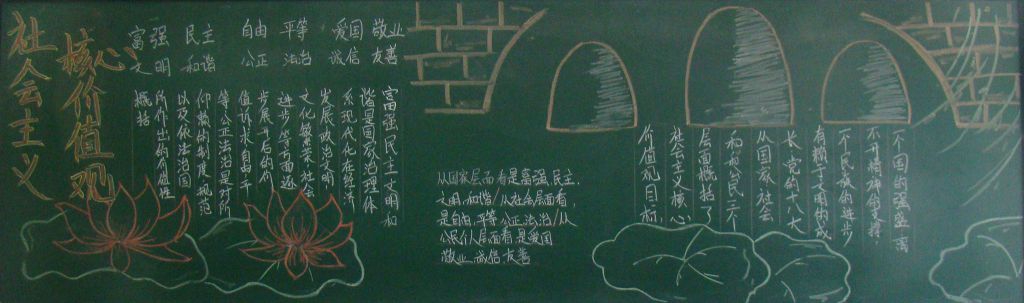 社会主义
核心价值观
富强 民主 自由 平等 爱国 敬业
文明 和谐 公正 法治 诚信 友善
富强民主文明和
谐是国家治理体
系现代化在经济
发展政治文明
文化繁荣社会
进步等方面逐
步展开后的价
值诉求自由平
等公正法治是对阶
仰散的制度规范
以及依法治国
所作出的有值性
概括
从国家层面看是富强民主.
文明.和谐/从社会层面看,
是自由,平等公正法治/从
公民个人层面看是爱国
敬业诚信友善
一个国的强盛离
不开精神的支撑.
一个民族的进步
有赖于文明的成
长.党的十八大
从国家社会
和公民三个
层面概括了
社会主义核心
价值观目标,